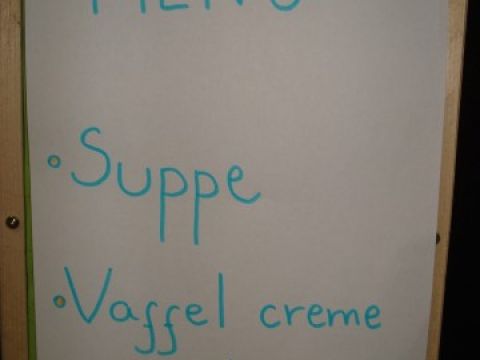 MENU
• Suppe
• Vaffel creme